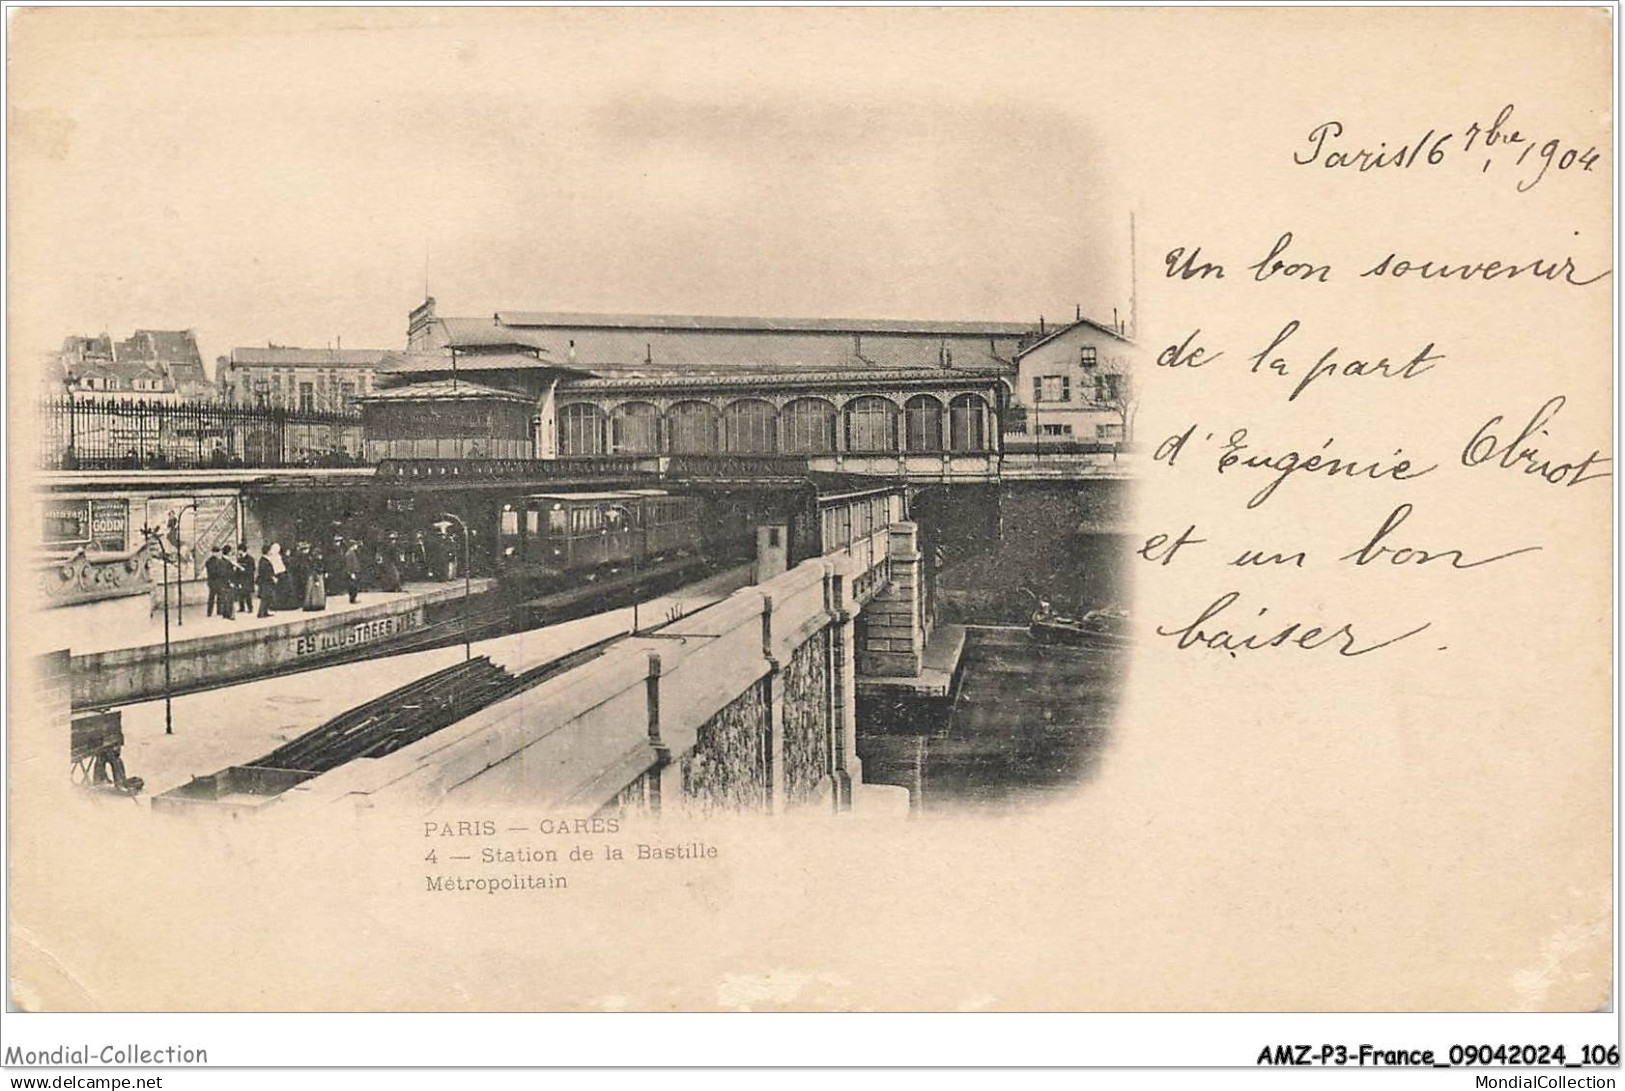 Paris 16 7bre, 1904
Un bon souvenir
de la part
d'Eugénie Obriot
et un bon
baiser.
GODIN
ES ILLUSTRÉES
PARIS — GARES
4 — Station de la Bastille
Métropolitain
Mondial-Collection
AMZ-P3-France_09042024_106
www.delcampe.net
MondialCollection